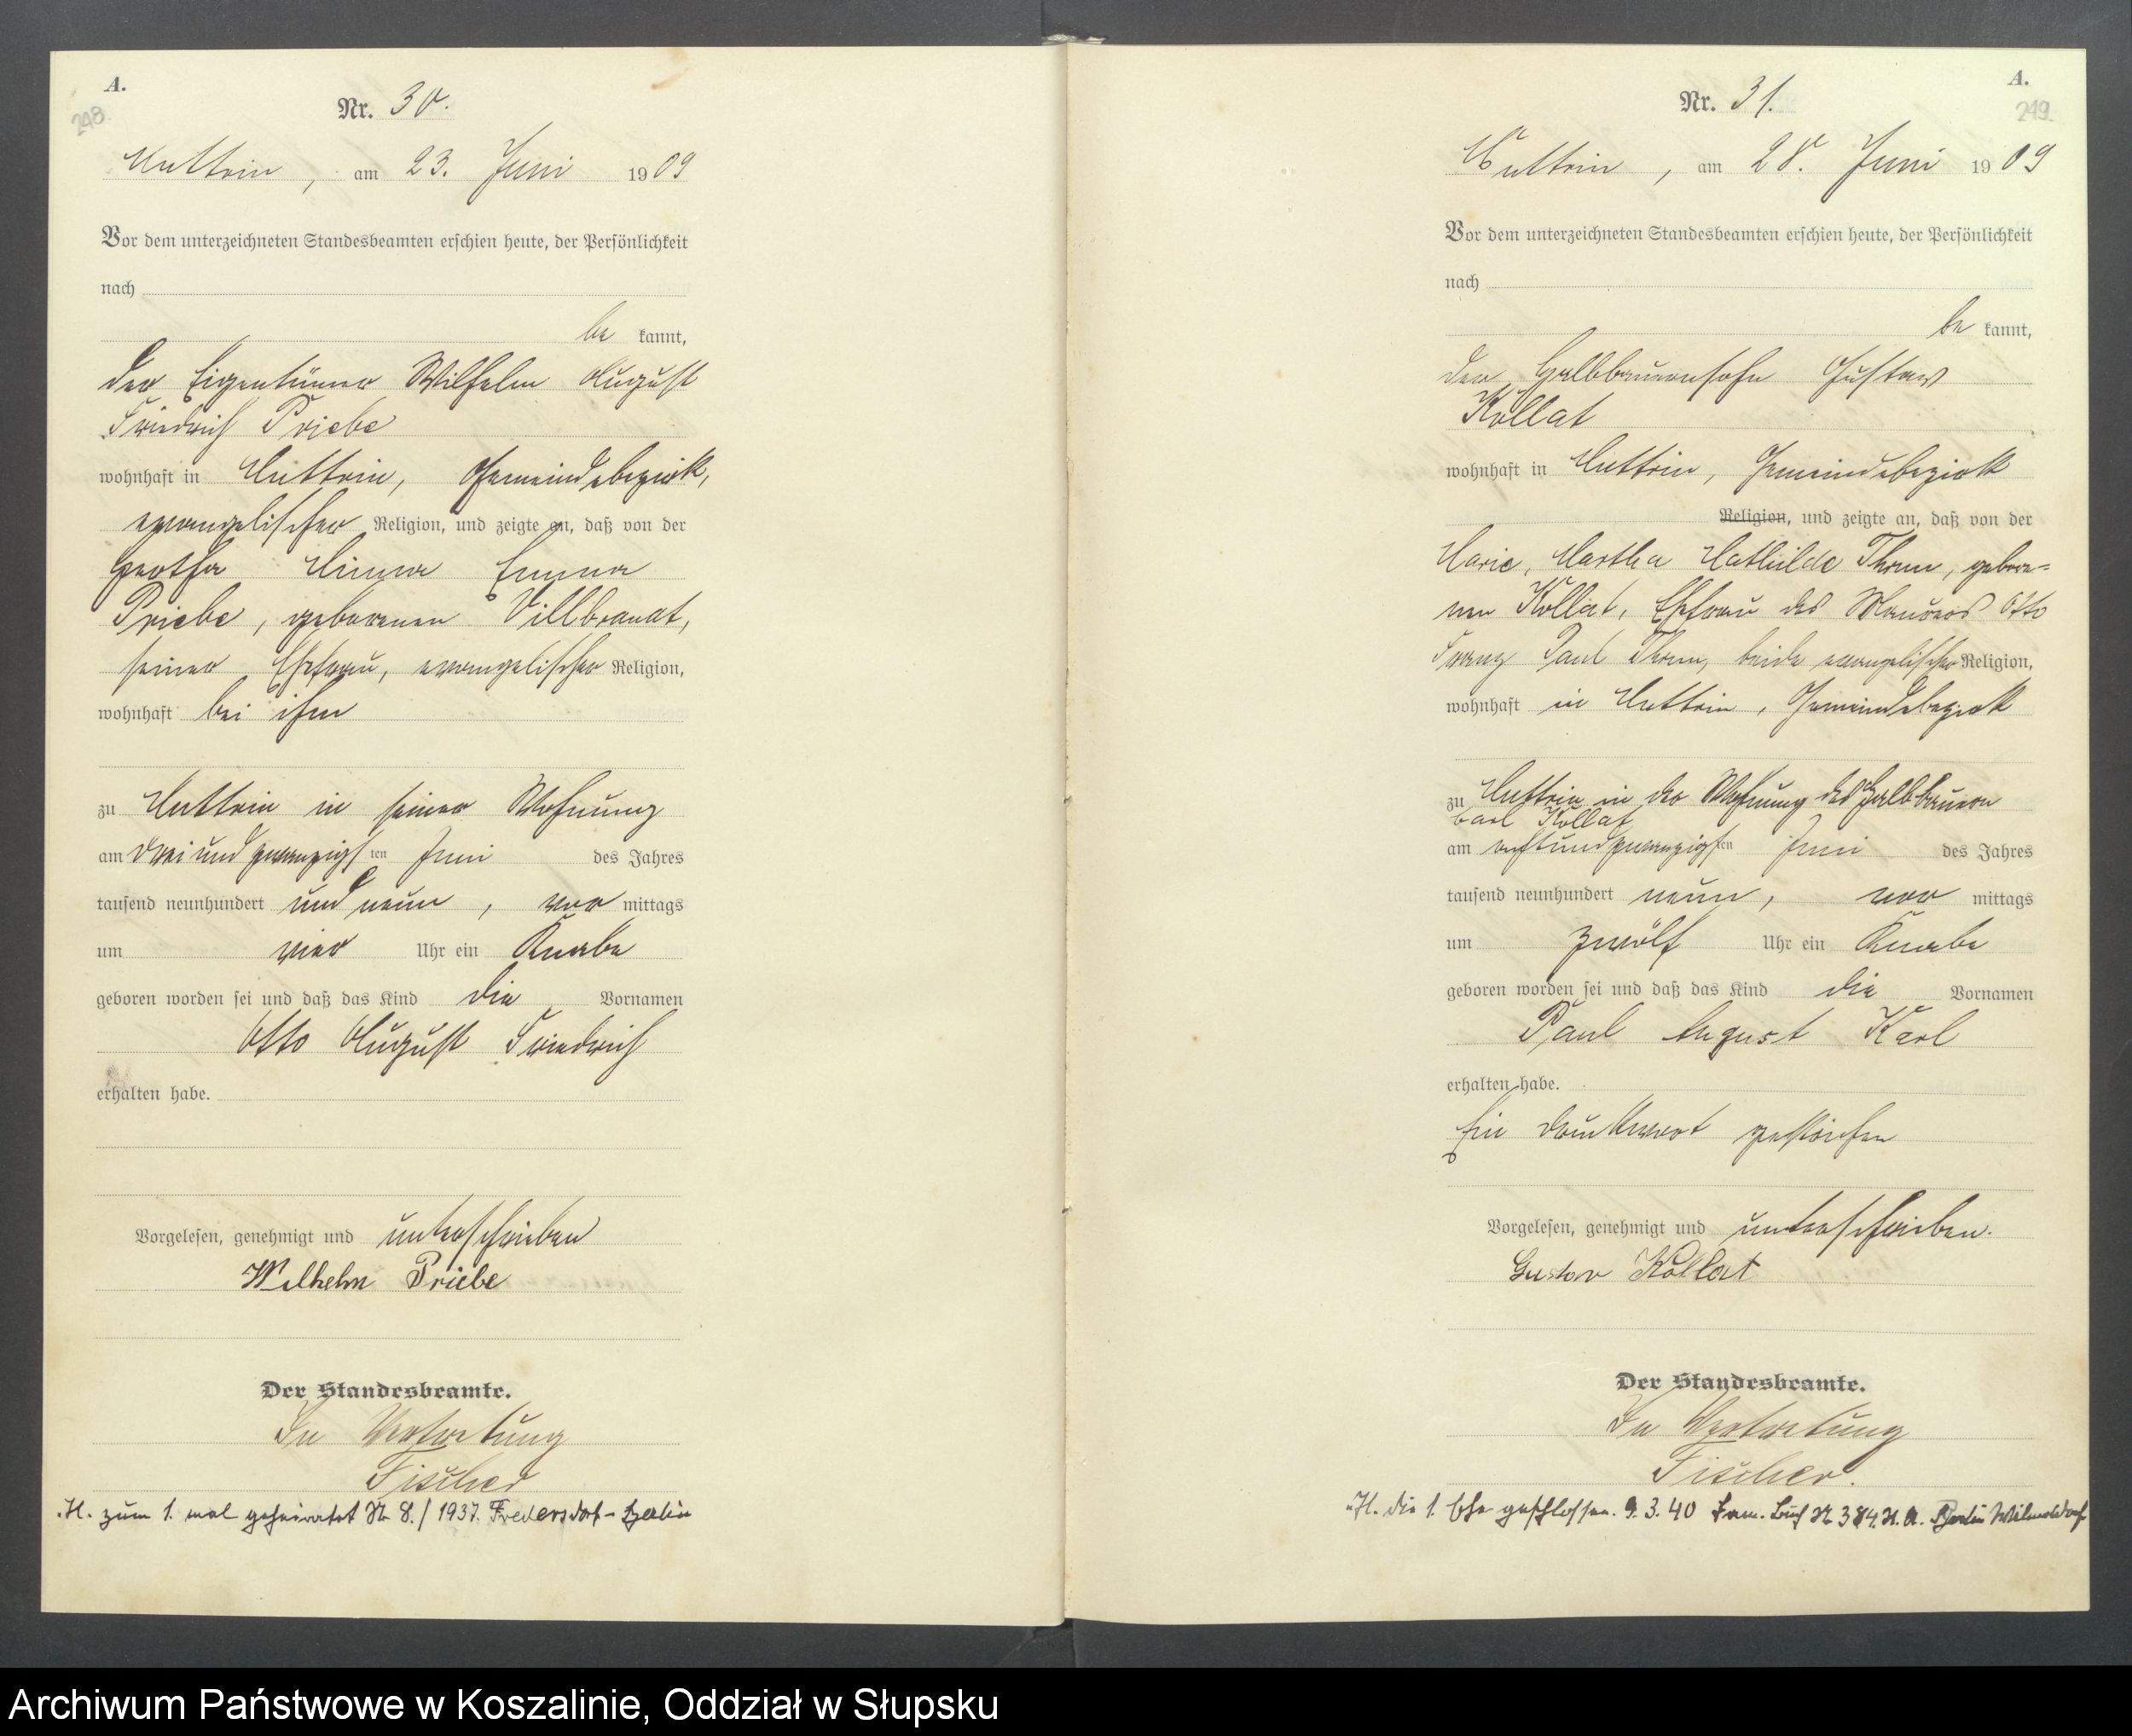 A.
248
Nr. 30.
Muttrin, am 23. Juni 1909
Vor dem unterzeichneten Standesbeamten erschien heute, der Persönlichkeit
nach
be kannt,
der Eigentümer Wilhelm August
Friedrich Priebe
wohnhaft in Muttrin, Gemeindebezirk,
evangelischer Religion, und zeigte an, daß von der
Bertha Minna Emma
Priebe, geborenen Villbrandt,
seiner Ehefrau, evangelischer Religion,
wohnhaft bei ihm
zu Muttrin in seiner Wohnung
am dreiundzwanzigsten Juni des Jahres
tausend neunhundert und neun, vor mittags
um vier Uhr ein Knabe
geboren worden sei und daß das Kind die Vornamen
Otto August Friedrich
erhalten habe.
Vorgelesen, genehmigt und unterschrieben
Wilhelm Priebe
Der Standesbeamte.
In Vertretung
Fischer
. H. zum 1. mal geheiratet Nr. 8./1937. Fredersdorf - Berlin
A.
249.
Nr. 31.
Muttrin, am 28. Juni 1909
Vor dem unterzeichneten Standesbeamten erschien heute, der Persönlichkeit
nach
be kannt,
der Halbbauernsohn Gustav
Kollat
wohnhaft in Muttrin, Gemeindebezirk
Religion, und zeigte an, daß von der
Marie, Martha Mathilde Thom, gebore-
nen Kollat, Ehefrau des Maurers Otto
Franz Paul Thom, beide evangelischer Religion,
wohnhaft in Muttrin, Gemeindebezirk
zu Muttrin in der Wohnung des Halbbauern
Carl Kollat
am achtundzwanzigsten Juni des Jahres
tausend neunhundert neun, vor mittags
um zwölf Uhr ein Knabe
geboren worden sei und daß das Kind die Vornamen
Paul August Karl
erhalten habe.
Ein Druckwort gestrichen
Vorgelesen, genehmigt und unterschrieben.
Gustav Kollat
Der Standesbeamte.
In Vertretung
Fischer.
H. die 1. Ehe geschlossen. 9. 3. 40 Fam. Buch Nr. 384. St. A. Berlin Wilmersdorf
Archiwum Państwowe w Koszalinie, Oddział w Słupsku